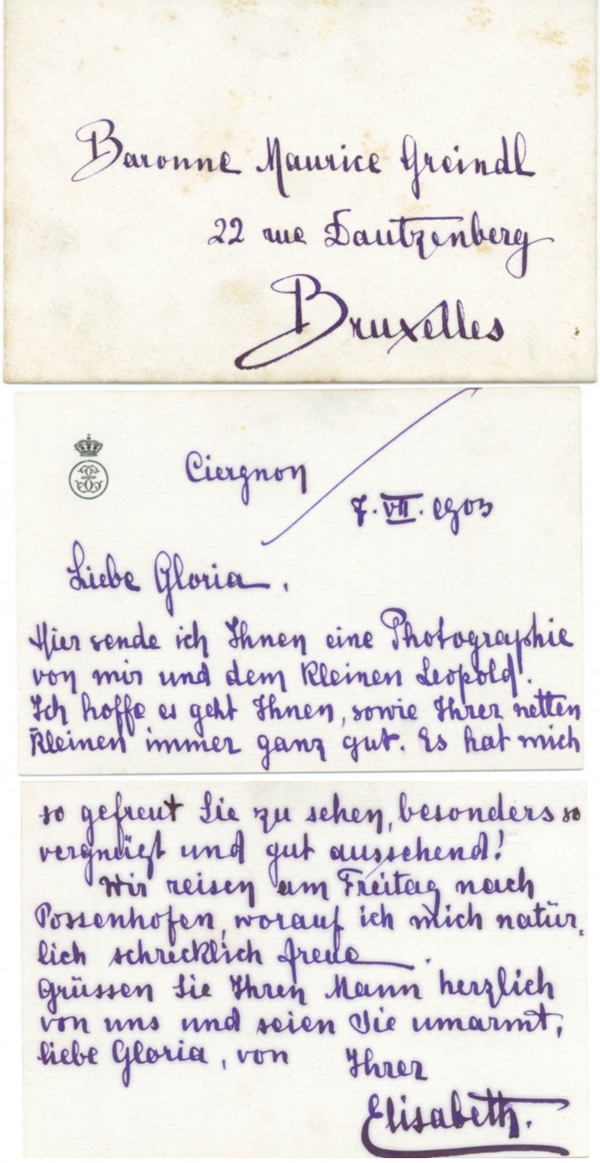 Baronne Maurice Greindl
22 rue Dautzenberg
Bruxelles
Ciergnon
7. VII. 1903
Liebe Gloria,
Hier sende ich Ihnen eine Photographie
von mir und dem kleinen Leopold.
Ich hoffe es geht Ihnen, sowie Ihrer netten
Kleinen immer ganz gut. Es hat mich
so gefreut Sie zu sehen, besonders so
vergnügt und gut aussehend!
Wir reisen am Freitag nach
Possenhofen, worauf ich mich natür-
lich schrecklich freue.
Grüssen Sie Ihren Mann herzlich
von uns und seien Sie umarmt,
liebe Gloria, von Ihrer
Elisabeth.